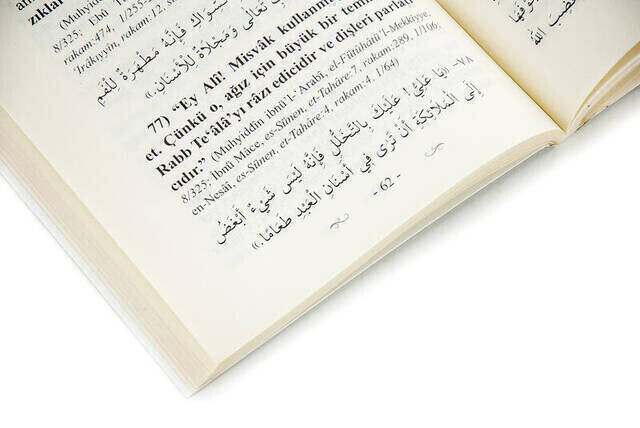 zıklar
8/325; Ebû
rakam:474, 1/255-
'Irâkıyyîn, rakam:12,
فَإِنَّهُ مَطْهَرَةٌ لِلْفَمِ
تَعَالَى وَمَجْلَاةٌ لِلْأَسْنَانِ.»
77) “Ey Ali! Misvâk kullanme
et. Çünkü o, ağız için büyük bir temi
Rabb Te‘âlâ’yı râzı edicidir ve dişleri parlat
cıdır.” (Muhyiddîn ibnü’l-‘Arabî, el-Fütûhâtü’l-Mekkiyye,
8/325; İbnü Mâce, es-Sünen, et-Tahâre-7, rakam:289, 1/106;
en-Nesâî, es-Sünen, et-Tahâre-4, rakam:4, 1/64)
٧٨- «يَا عَلِيُّ! عَلَيْكَ بِالتَّخَلُّلِ فَإِنَّهُ لَيْسَ شَيْءٌ أَبْغَضُ
إِلَى الْمَلَائِكَةِ أَنْ تَرَى فِي أَسْنَانِ الْعَبْدِ طَعَامًا.»
- 62 -
الله